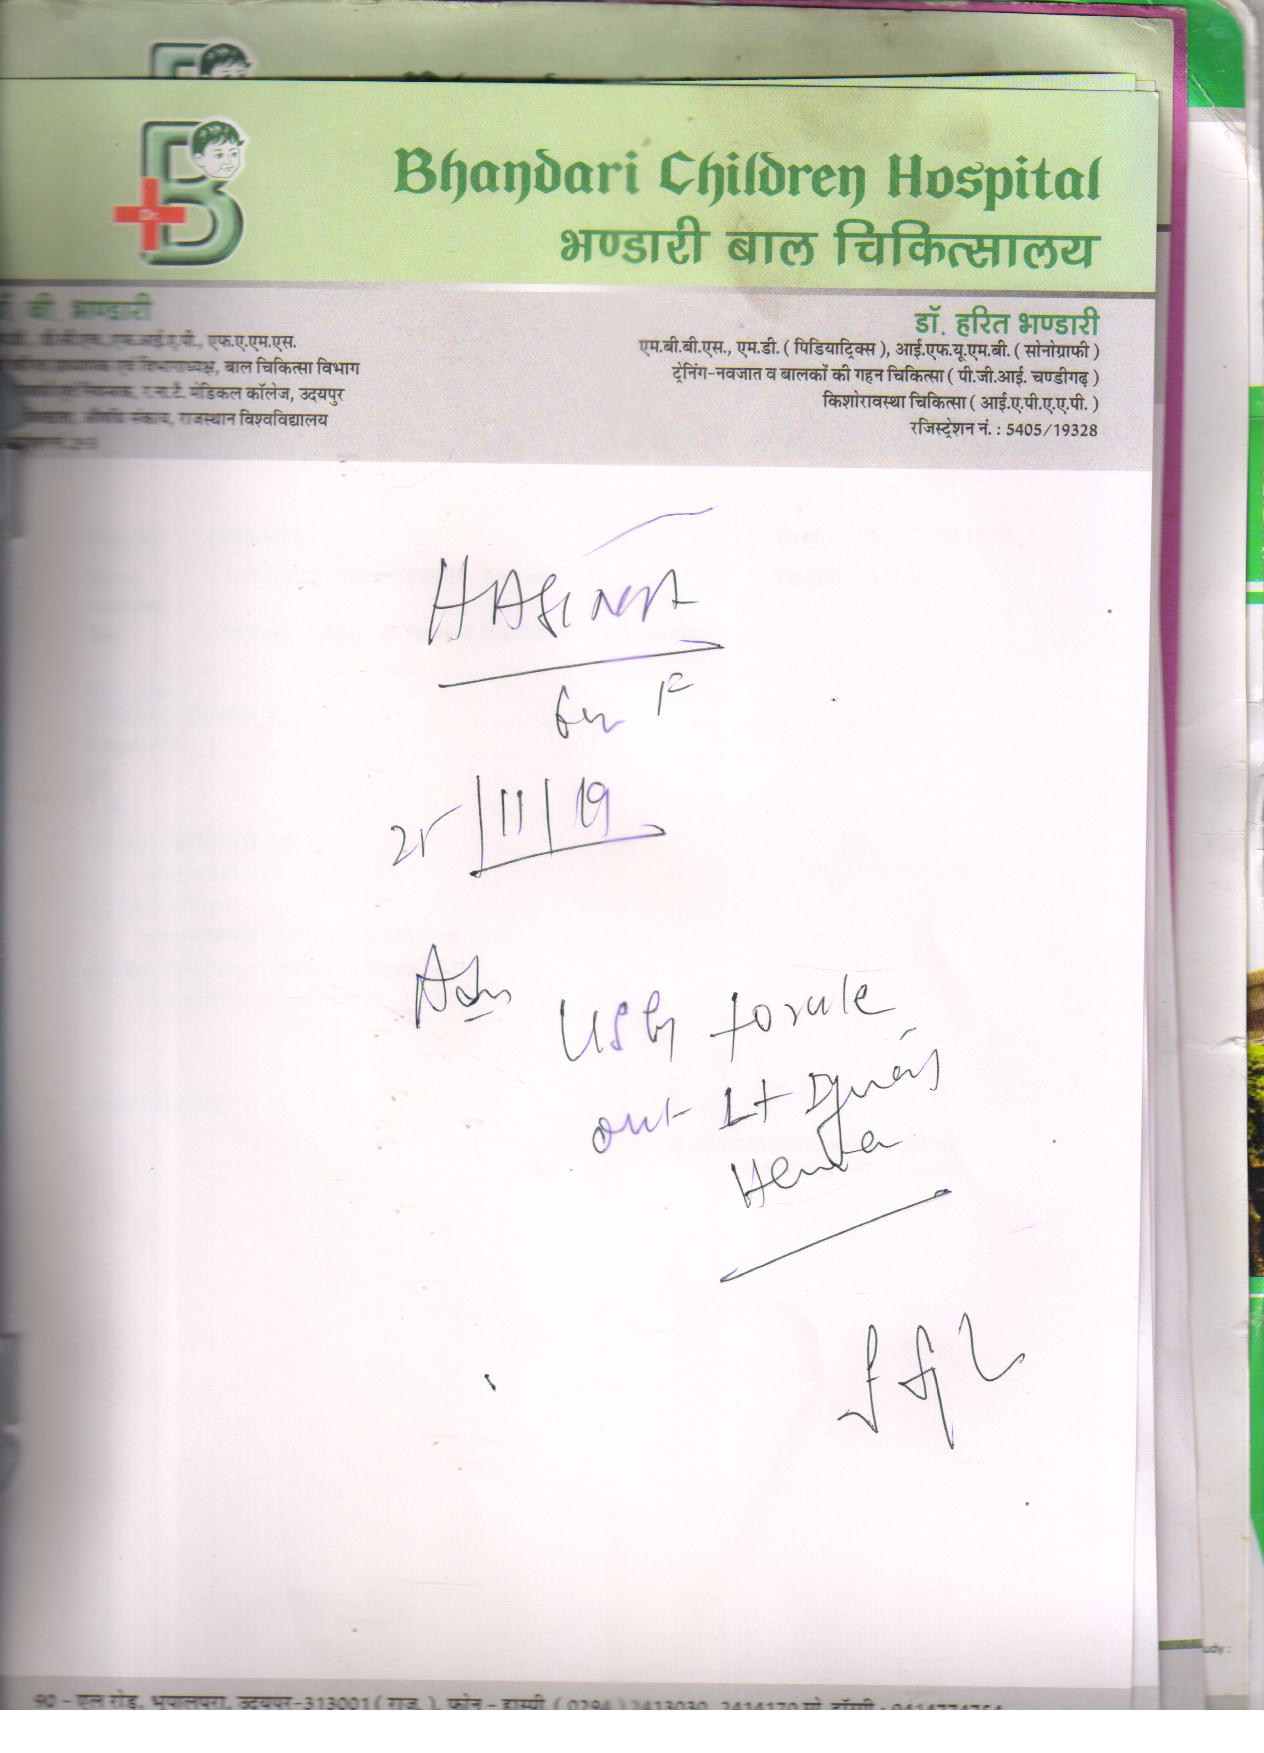 Bhandari Children Hospital
भण्डारी बाल चिकित्सालय
Dr.
बी. भण्डारी
एफ.ए.एम.एस.
एवं विभागाध्यक्ष, बाल चिकित्सा विभाग
र.ना.टै. मेडिकल कॉलेज, उदयपुर
संकाय, राजस्थान विश्वविद्यालय
डॉ. हरित भण्डारी
एम.बी.बी.एस., एम.डी. ( पिडियाट्रिक्स ), आई.एफ.यू.एम.बी. ( सोनोग्राफी )
ट्रेनिंग-नवजात व बालकों की गहन चिकित्सा ( पी.जी.आई. चण्डीगढ़ )
किशोरावस्था चिकित्सा ( आई.ए.पी.ए.ए.पी. )
रजिस्ट्रेशन नं. : 5405/19328
6yr F
25/11/19
Adv
USG to rule
out Lt
Hernia
90 - एल रोड, भूपालपुरा, उदयपुर-313001 ( राज. ), फोन - हास्पी. ( 0294 ) 2413030, 2414170
udy :